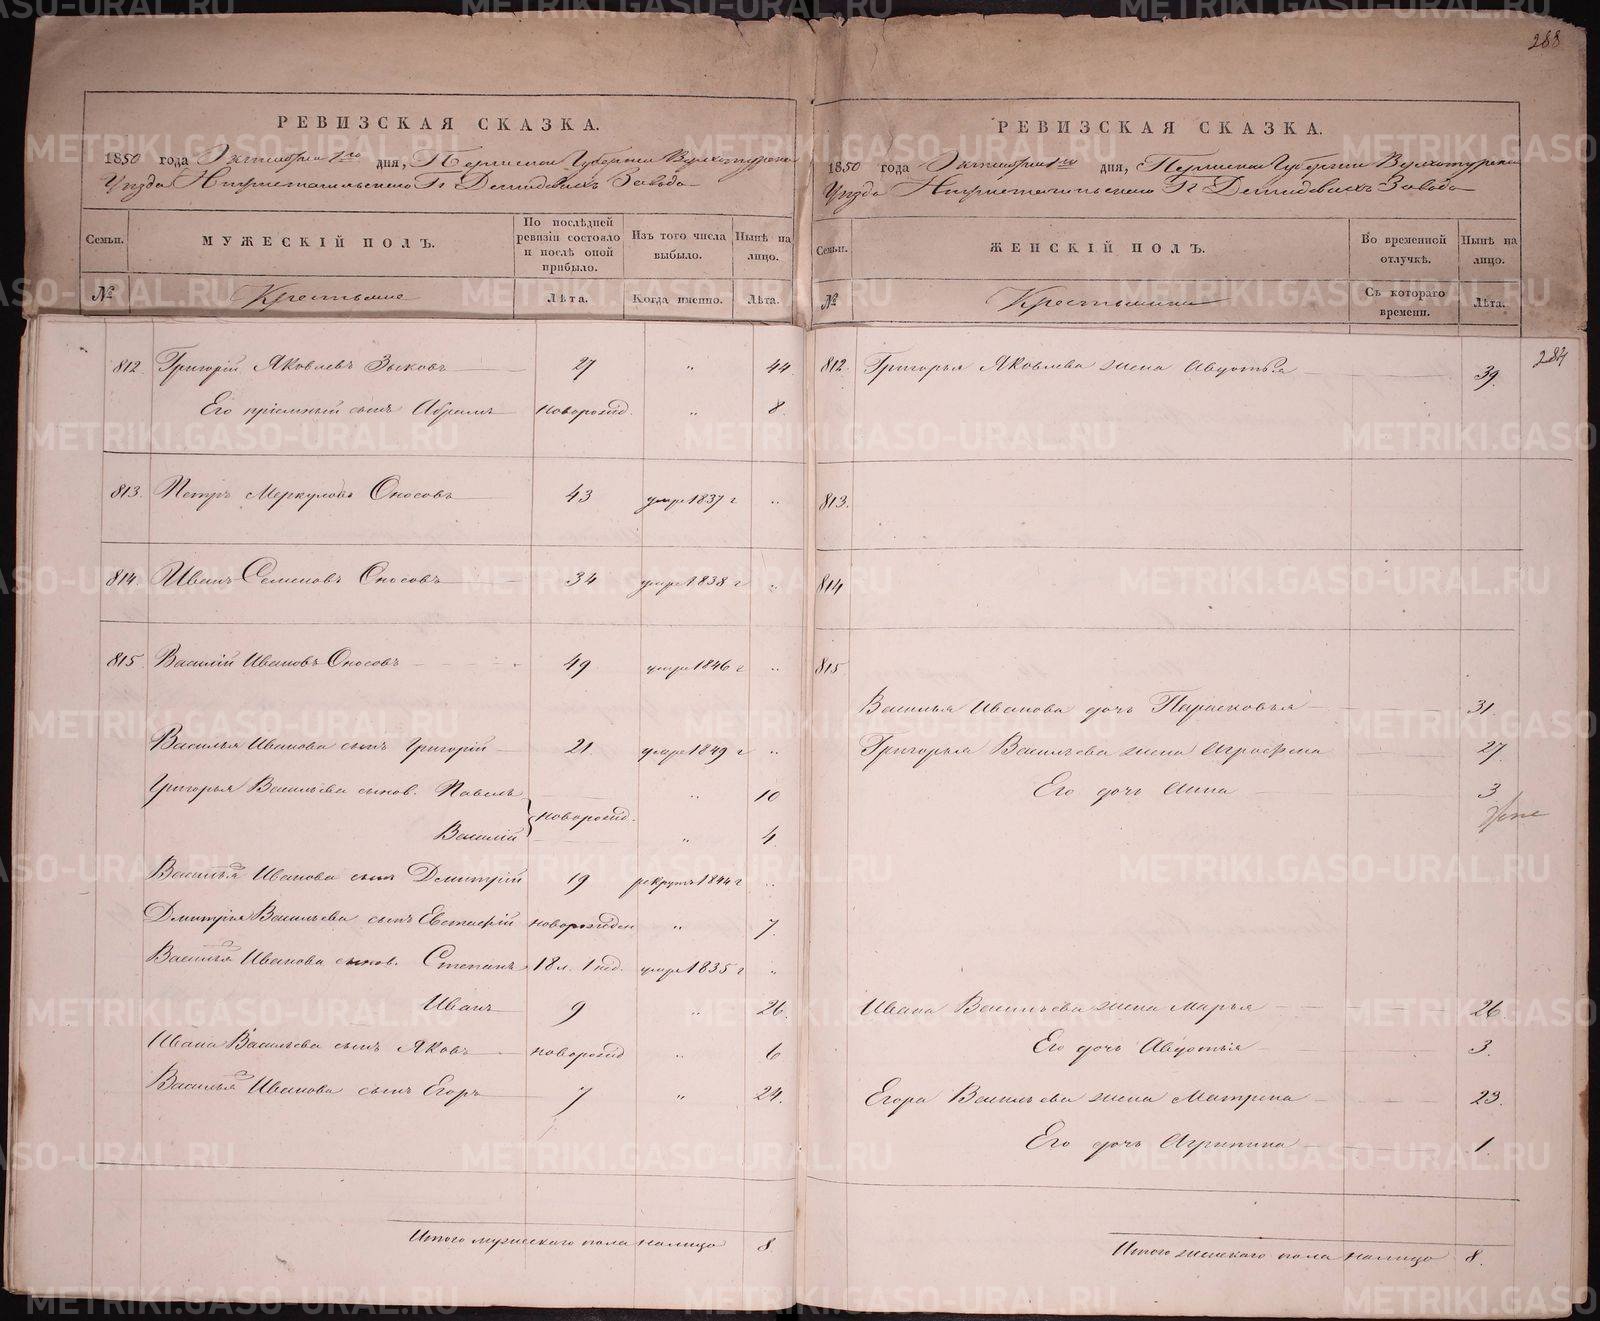 288
РЕВИЗСКАЯ СКАЗКА.
1850 года Октября 1го дня, Пермской Губернии Верхотурскаго
Уезда Нижнетагильскаго Гг Демидовыхъ Завода
Семьи. МУЖЕСКІЙ ПОЛЪ. По послѣдней ревизіи состояло и послѣ оной прибыло. Изъ того числа выбыло. Нынѣ на лицо.
№ Крестьяне Лѣта. Когда именно. Лѣта.
812. Григорій Яковлевъ Зыковъ 27 " 44
Его пріемный сынъ Абрамъ новорожд. " 8.
813. Петръ Меркуловъ Оносовъ 43 умре 1837 г "
814. Иванъ Семеновъ Оносовъ 34 умре 1838 г "
815. Василій Ивановъ Оносовъ 49 умре 1846 г "
Василья Иванова сынъ Григорій 21. умре 1849 г "
Григорья Васильева сынов. Павелъ " 10
новорожд.
Василій " 4.
Василья Иванова сынъ Дмитрій 19 рекрутъ 1844 г "
Дмитрія Васильева сынъ Евстафій новорожден " 7.
Василья Иванова сынов. Степанъ 18 л. 1 нед. умре 1835 г "
Иванъ 9 " 26.
Ивана Васильева сынъ Яковъ новорожд " 6
Василья Иванова сынъ Егоръ 7 " 24.
Итого мужескаго пола налицо 8.
РЕВИЗСКАЯ СКАЗКА.
1850 года Октября 1го дня, Пермской Губерніи Верхотурскаго
Уезда Нижнетагильскаго Гг Демидовыхъ Завода
Семьи. ЖЕНСКІЙ ПОЛЪ. Во временной отлучкѣ. Нынѣ на лицо.
№ Крестьянки Съ котораго времени. Лѣта.
284
812. Григорья Яковлева жена Авдотья 39.
813.
814
815.
Василья Иванова дочь Парасковья 31.
Григорья Васильева жена Аграфена 27.
Его дочь Анна 3
Ивана Васильева жена Марья 26
Его дочь Авдотья 3.
Егора Васильева жена Матрена 23.
Его дочь Агрипина 1.
Итого женскаго пола налицо 8.
METRIKI.GASO-URAL.RU